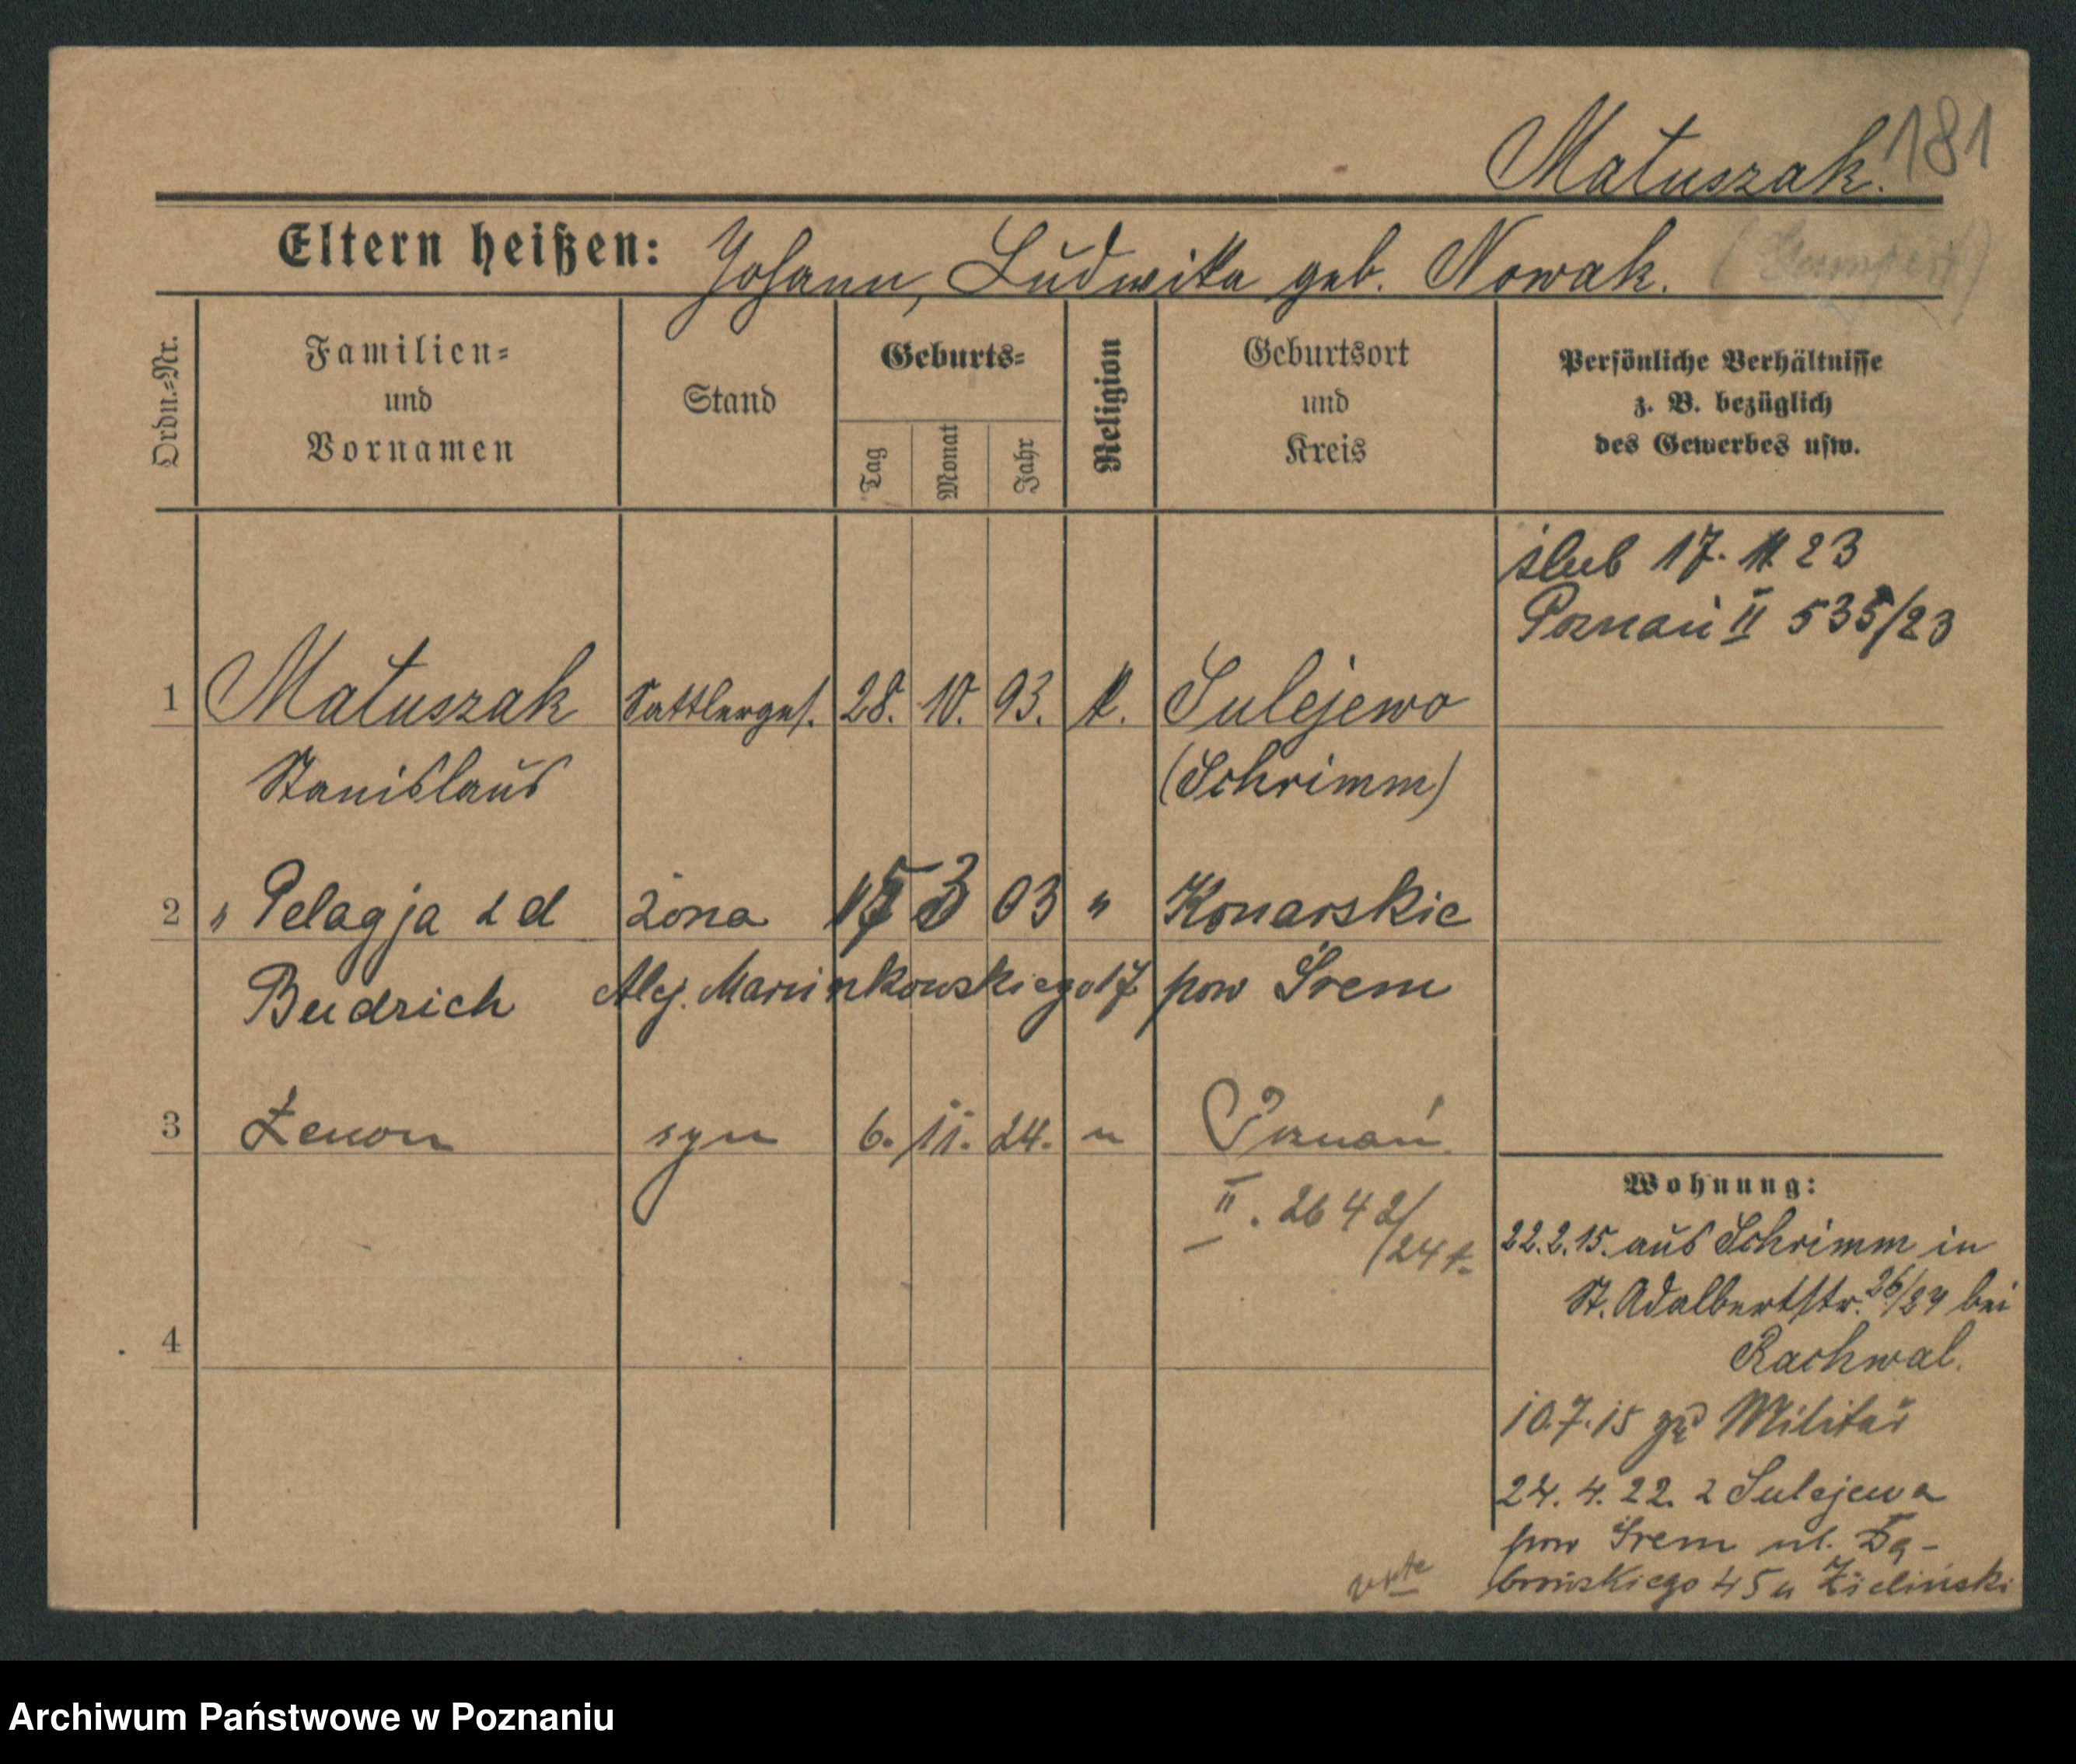 Matuszak. 181
Eltern heißen: Johann, Ludwika geb. Nowak.
Ordn.=Nr.
Familien=
und
Vornamen
Stand
Geburts=
Tag
Monat
Jahr
Religion
Geburtsort
und
Kreis
Persönliche Verhältnisse
z. B. bezüglich
des Gewerbes usw.
ślub 17. 11 23
Poznań II 535/23
1 Matuszak Sattlerges. 28. 10. 93. k. Sulejewo
Stanislaus (Schrimm)
2 " Pelagja z d żona 15 3 03 " Konarskie
Budrich Alej. Marcinkowskiego 17 pow Śrem
3 Zenon syn 6. 11. 24. " Poznań
II. 2642/
/24 r.
4
Wohnung:
22.2.15. aus Schrimm in
St. Adalbertstr. 26/27 bei
Rachwal.
10.7.15 zu Militär
24. 4. 22. z Sulejewa
pow Śrem ul. Dą-
browskiego 45 u Zieliński